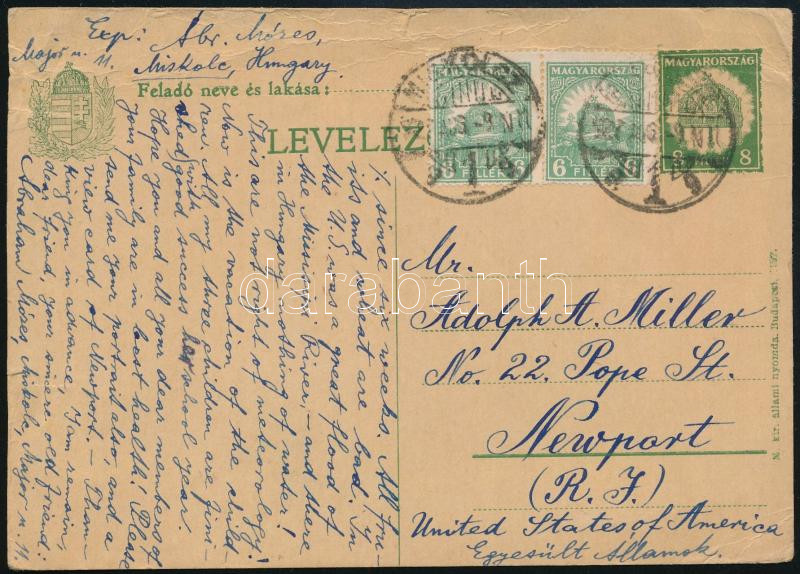 Exp: Abr. Móres,
Major u. 11. Miskolc, Hungary.
Feladó neve és lakása:
LEVELEZ
MAGYARORSZÁG
6 FILLÉR 6
MAGYARORSZÁG
6 FILL
MAGYARORSZÁG
8 8
% since six weeks. All fru-
its and wheat are bad. In
the U.S. was a great flood of
the Mississippi River, – and there
in Hungary nothing of water!
This are not right of meteorology!
Now is the vacation of the child-
ren. All my three children are fini-
shed with good success her school year.
Hope you and all your dear members of
your family are in best health! Please
send me your portrait also, and a
view card of Newport. – Than-
king you in advance, I am remain,
dear friend, your sincere old friend:
Abraham Móres, Miskolc, Major u. 11.
Mr.
Adolph A. Miller
No. 22. Pope St.
Newport
(R. I.)
United States of America
Egyesült Államok.
M. kir. állami nyomda. Budapest, 1927.
darabanth